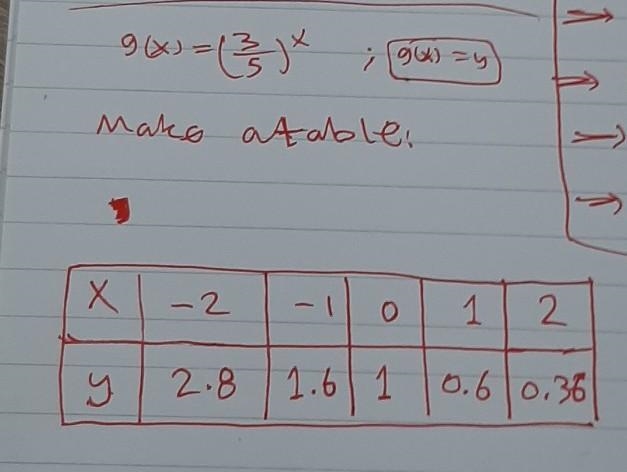 g(x) = (3/5)^x ; g(x) = y
Make a table:
X -2 -1 0 1 2
y 2.8 1.6 1 0.6 0.36